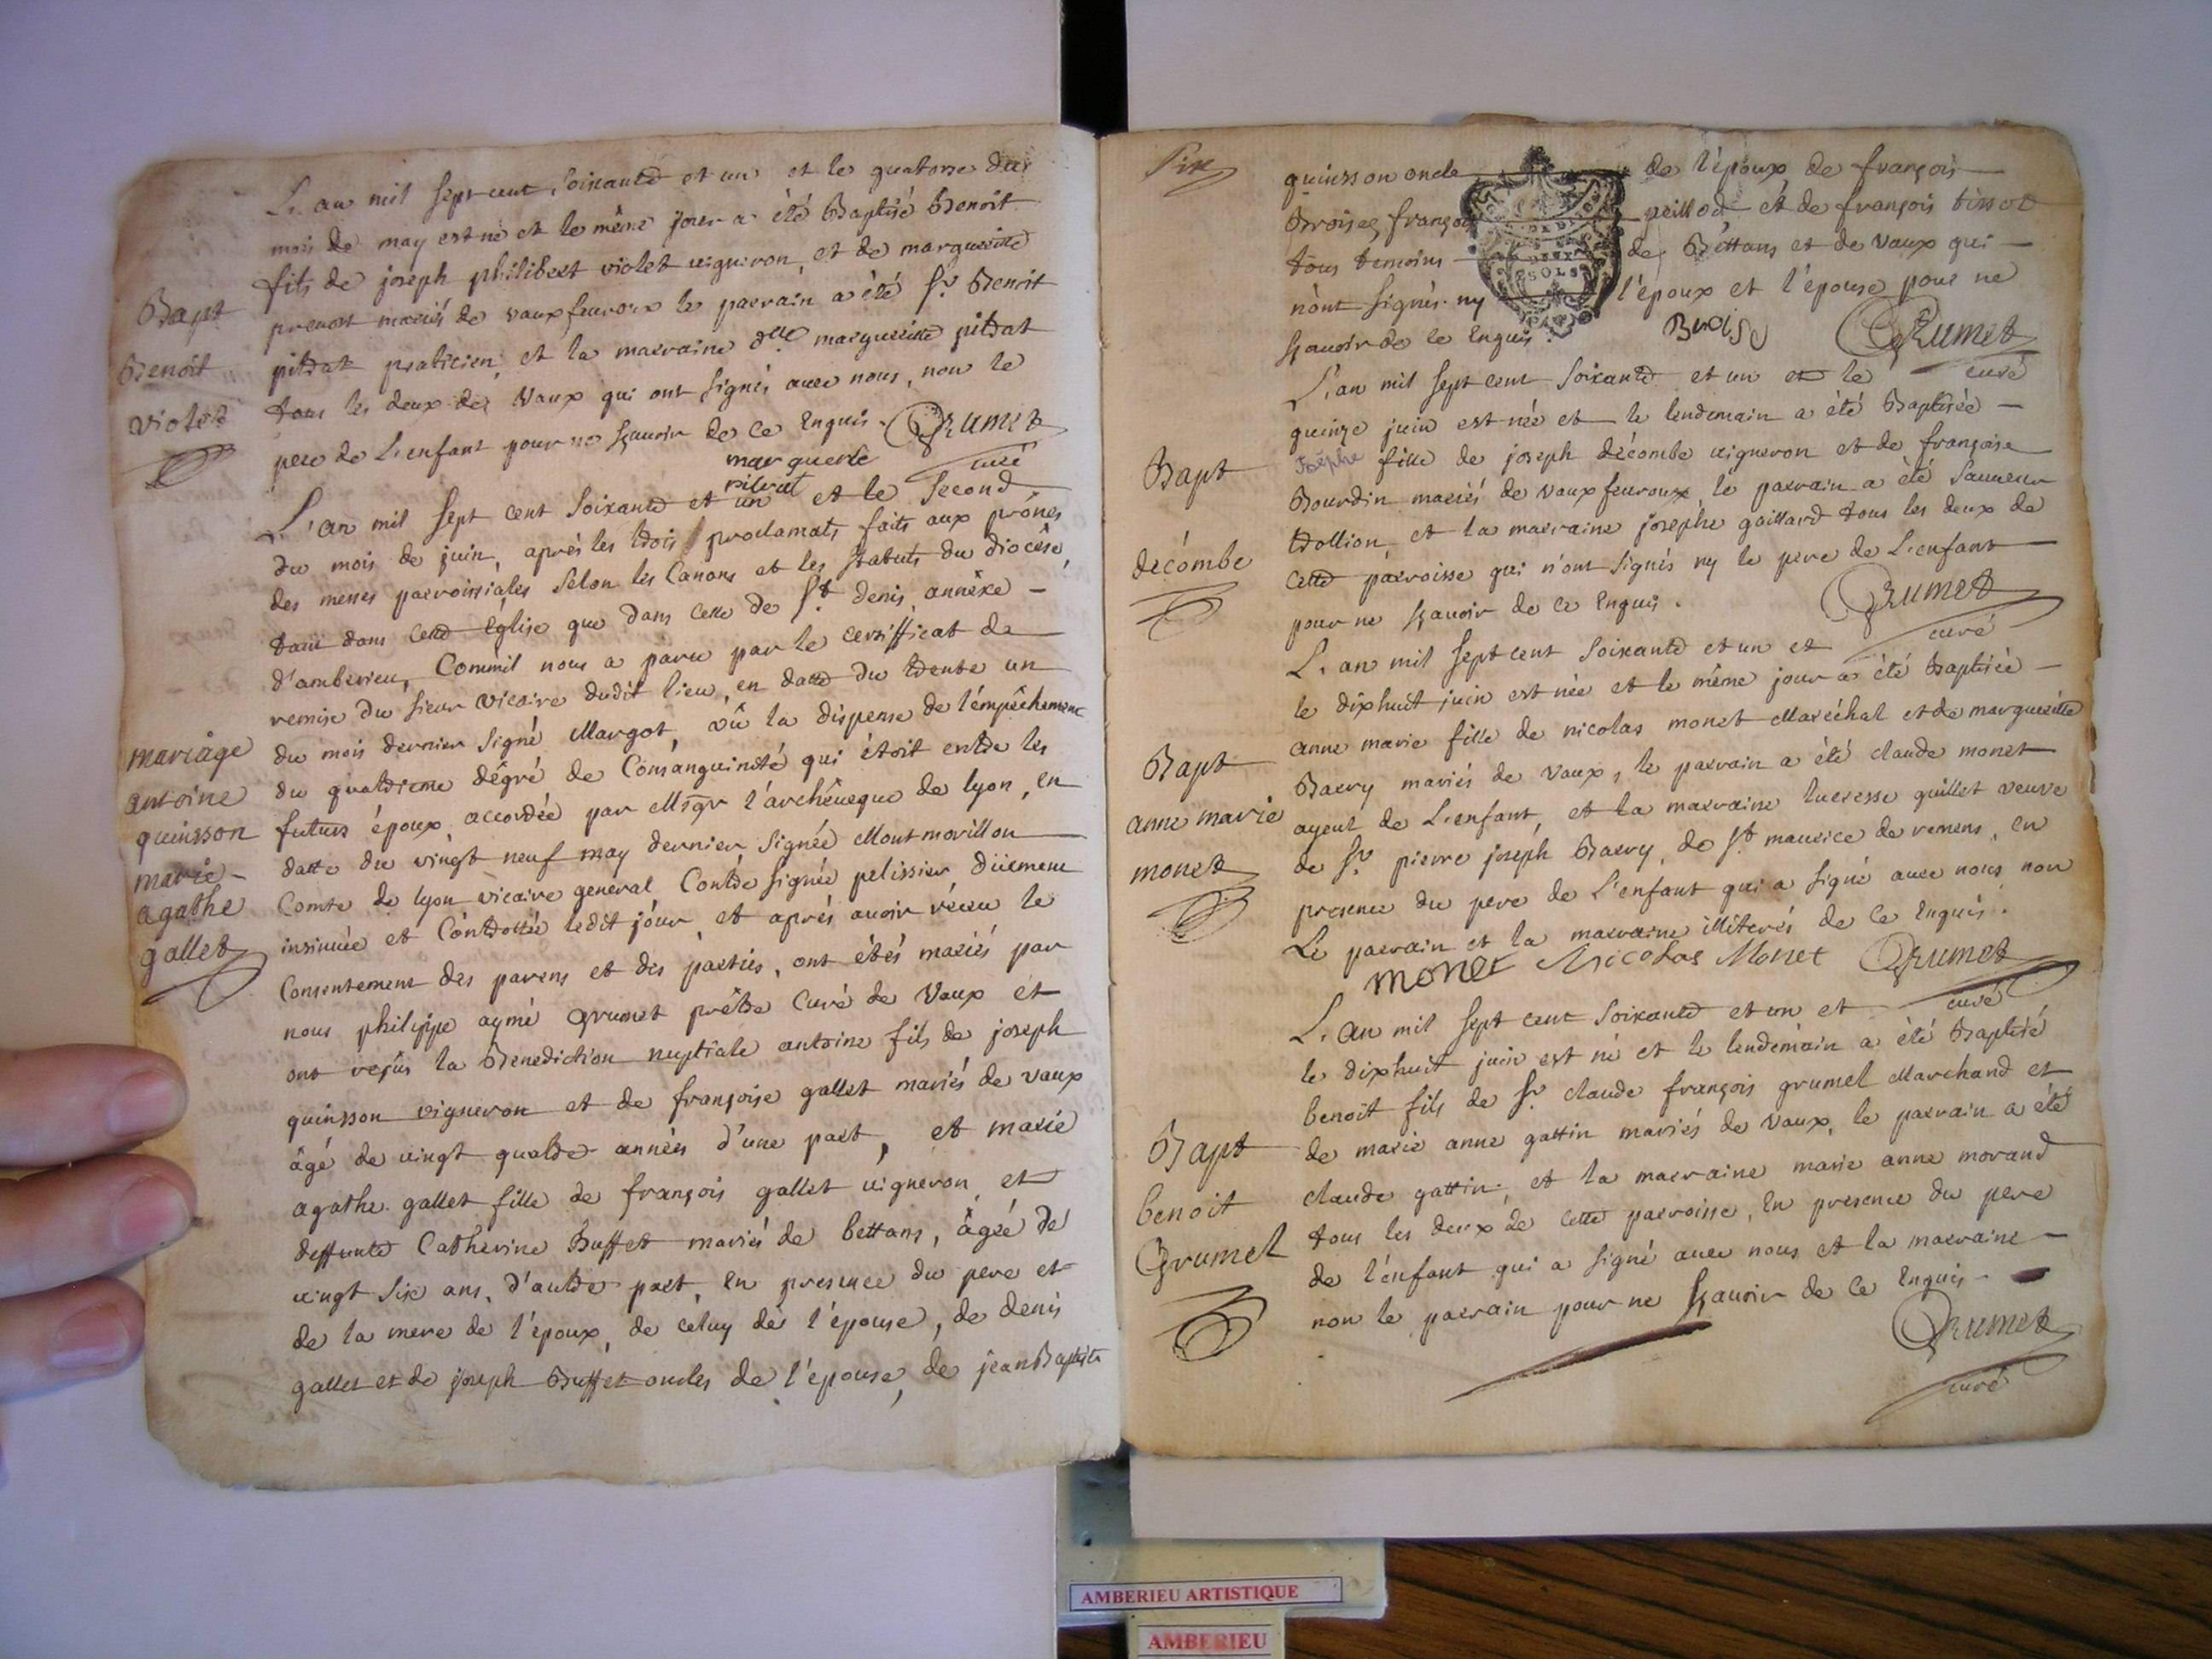 L'an mil sept cent soixante et un et le quatorse du
mois de may est né et le même jour a été Baptisé Benoit
fils de joseph philibert violet vigneron, et de margueritte
prevost mariés de vaux fevroux le parrain a été Sr Benoit
pitrat praticien, et la marraine dlle margueritte pitrat
tous les deux de Vaux qui ont signés avec nous, non le
pere de L'enfant pour ne sçavoir de ce Enquis. Grumet
curé
marguerite
pitrat
Bapt
Benoit
violet
L'an mil sept cent soixante et un et le second
du mois de juin, aprés les trois proclamats faits aux prônes
des messes parroissiales selon les Canons et les statuts du diocése,
tant dans cette Eglise que dans celle de St denis annéxe
d'amberieu, Commil nous a paru par le certifficat de
remise du sieur vicaire dudit lieu, en datte du trente un
du mois dernier signé Margot, vû la dispense de l'émpêchement
du quatrieme dégré de Consanguinité qui étoit entre les
futurs époux accordée par Msgr l'archêveque de lyon, en
datte du vingt neuf may dernier signée Montmorillon
Comte de lyon vicaire general Contre signée pelissier düement
insinuée et Controllée ledit jour, et aprés avoir réceu le
Consentement des parens et des parties, ont étés mariés par
nous philippe aymé Grumet prêtre Curé de Vaux et
ont reçûs la Benediction nuptiale antoine fils de joseph
quinsson vigneron et de françoise gallet mariés de vaux
âgé de vingt quatre années d'une part, et marie
agathe gallet fille de françois gallet vigneron et
deffunte Catherine Buffet mariés de bettans, âgée de
vingt six ans, d'autre part, En presence du pere et
de la mere de l'époux, de céluy de l'épouse, de denis
gallet et de joseph Buffet oncles de l'épouse, de jean Baptiste
mariage
antoine
quinsson
marie
agathe
gallet
Six
quinsson oncle de l'époux de françois
Broisez, françois peillod et de françois tissot
tous temoins de Bettans et de Vaux qui
n'ont signés ny l'époux et l'épouse pour ne
sçavoir de ce Enquis. Grumet
curé
DEUX
SOLS
L'an mil sept cent soixante et un et le
quinze juin est née et le lendemain a été Baptisée
Joséphe fille de joseph décombe vigneron et de françoise
Bourdin mariés de vaux fevroux, le parrain a été Sauveur
trollion, et la marraine josephe gaillard tous les deux de
cette parroisse qui n'ont signés ny le pere de L'enfant
pour ne sçavoir de ce Enquis. Grumet
curé
Bapt
decómbe
L'an mil sept cent soixante et un et
le dixhuit juin est née et le même jour a été Baptisée
anne marie fille de nicolas monet Maréchal et de margueritte
Barry mariés de Vaux, le parrain a été claude monet
ayeul de L'enfant, et la marraine lucresse guillet veuve
de Sr pierre joseph Barry, de St maurice de remens, En
presence du pere de L'enfant qui a signé avec nous non
Le parrain et la marraine illiterés de ce Enquis.
monet Nicolas Monet Grumet
curé
Bapt
anne marie
monet
L'an mil sept cent soixante et un et
le dixhuit juin est né et le lendemain a été Baptisé
benoit fils de Sr claude françois grumel Marchand et
de marie anne gattin mariés de Vaux, le parrain a été
claude gattin, et la marraine marie anne morand
tous les deux de cette parroisse, En presence du pere
de l'enfant qui a signé avec nous et la marraine
non le parrain pour ne sçavoir de ce Enquis
Grumet
curé
Bapt
benoit
Grumel
AMBERIEU ARTISTIQUE
AMBERIEU